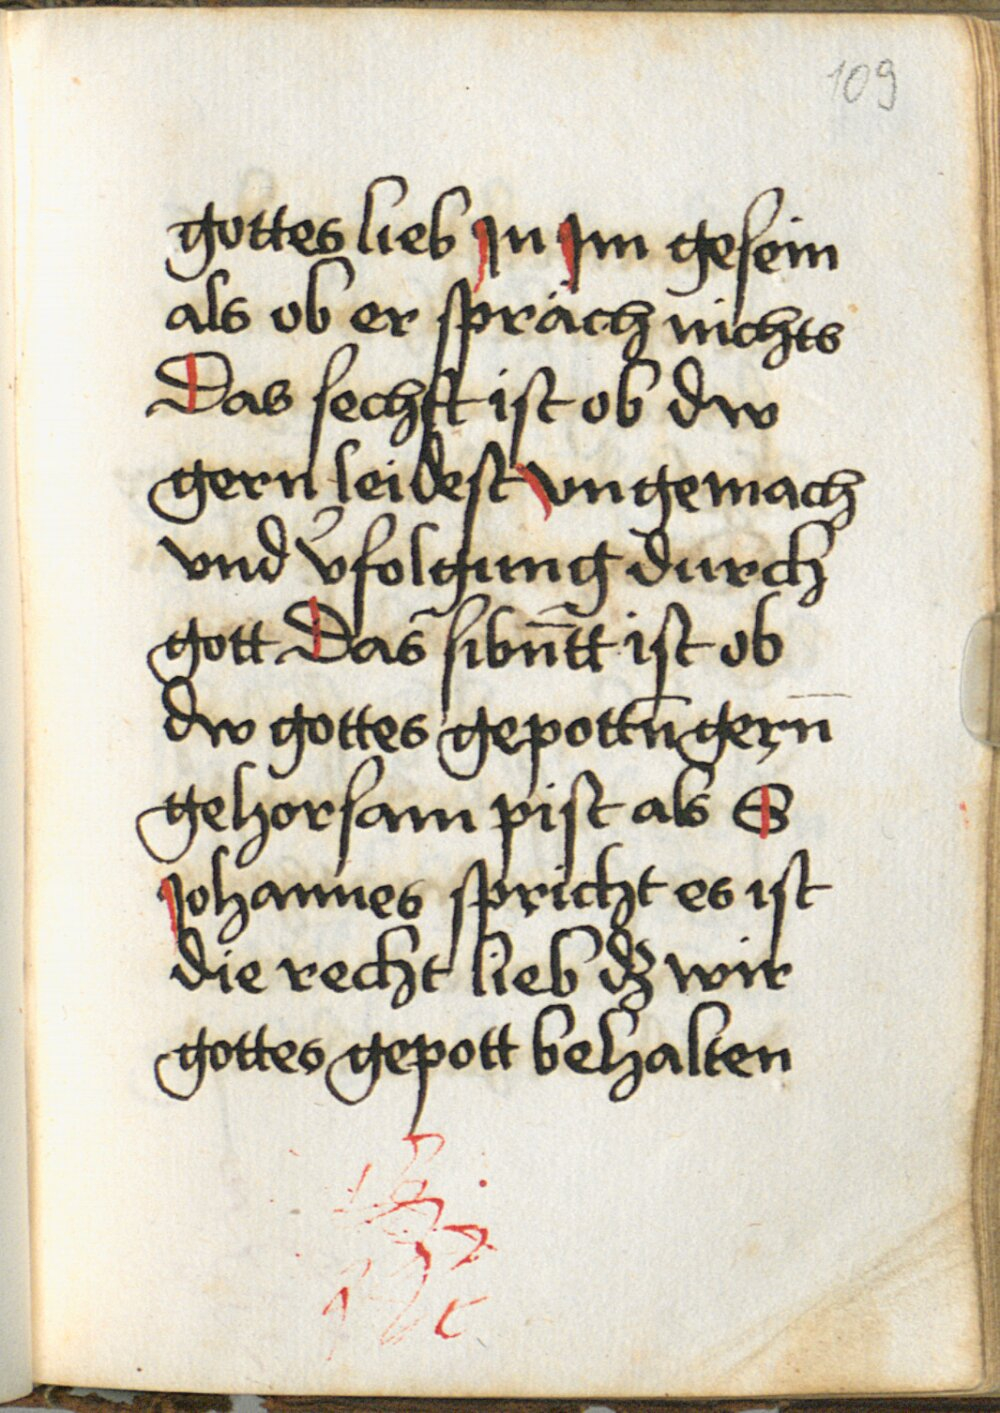 109
gottes lieb Jn Jm gesein
als ob er spräch nichts
Das sechst ist ob dw
gern leidest vngemach
vnd v̾folgung durch
gott Das sibūtt ist ob
dw gottes gepottn̄ gern̄
gehorsam pist als S
Johannes spricht es ist
die recht lieb dʒ wir
gottes gepott behalten